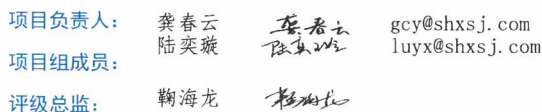 项目负责人： 龚春云 龚春云 gcy@shxsj.com
陆奕璇 陆奕璇 luyx@shxsj.com
项目组成员：
评级总监： 鞠海龙 鞠海龙